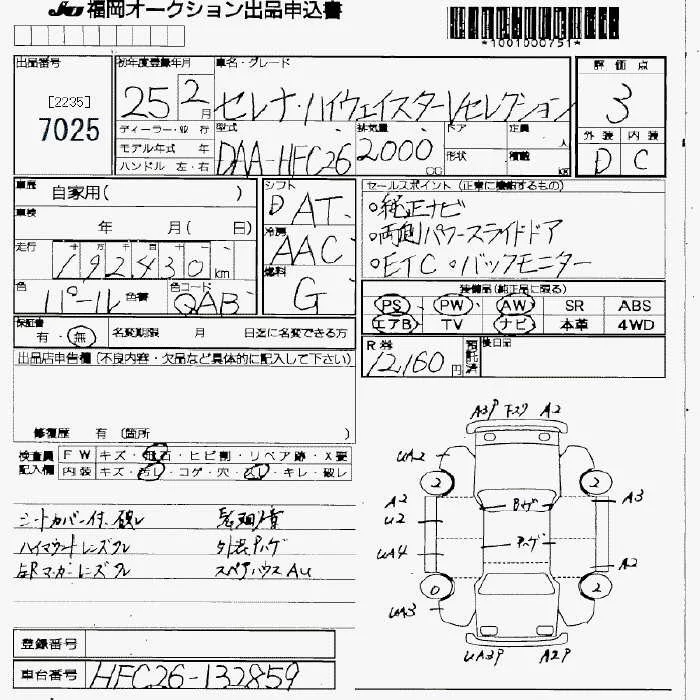 JU 福岡オークション出品申込書
*1001000751*
出品番号
[2235]
7025
初年度登録年月
25 2月
車名・グレード
セレナ・ハイウェイスターVセレクション
評価点
3
外装 内装
D C
ディーラー・並行
モデル年式 年
ハンドル 左・右
型式
DAA-HFC26
排気量
2000 CC
ドア
定員 人
形状
積載 KG
車歴
自家用( )
車検
年 月( 日)
走行
192430 km
色
パール 色番
色コード
QAB
シフト
D AT
冷房
AAC
燃料
G
セールスポイント(正常に機能するもの)
○純正ナビ
○両側パワースライドドア
○ETC ○バックモニター
装備品(純正品に限る)
PS PW AW SR ABS
エアB TV ナビ 本革 4WD
保証書
有・無
名変期限 月 日迄に名変できる方
R券
12,160円
預託済
後日品
出品店申告欄(不良内容・欠品など具体的に記入して下さい)
修復歴 有 (箇所 )
検査員記入欄
FW キズ・飛石・ヒビ割・リペア跡・X要
内装 キズ・汚レ・コゲ・穴・スレ・キレ・破レ
シートカバー付、破レ
ハイマウントレンズワレ
外装ハゲ
スペアハウスAU
A3P 下スリ A2
UA2
2 2
A2
U2
UA4
Bハゲ
Aハゲ
A3
A2
0 2
UA3
UA3P A2P
登録番号
車台番号
HFC26-132859